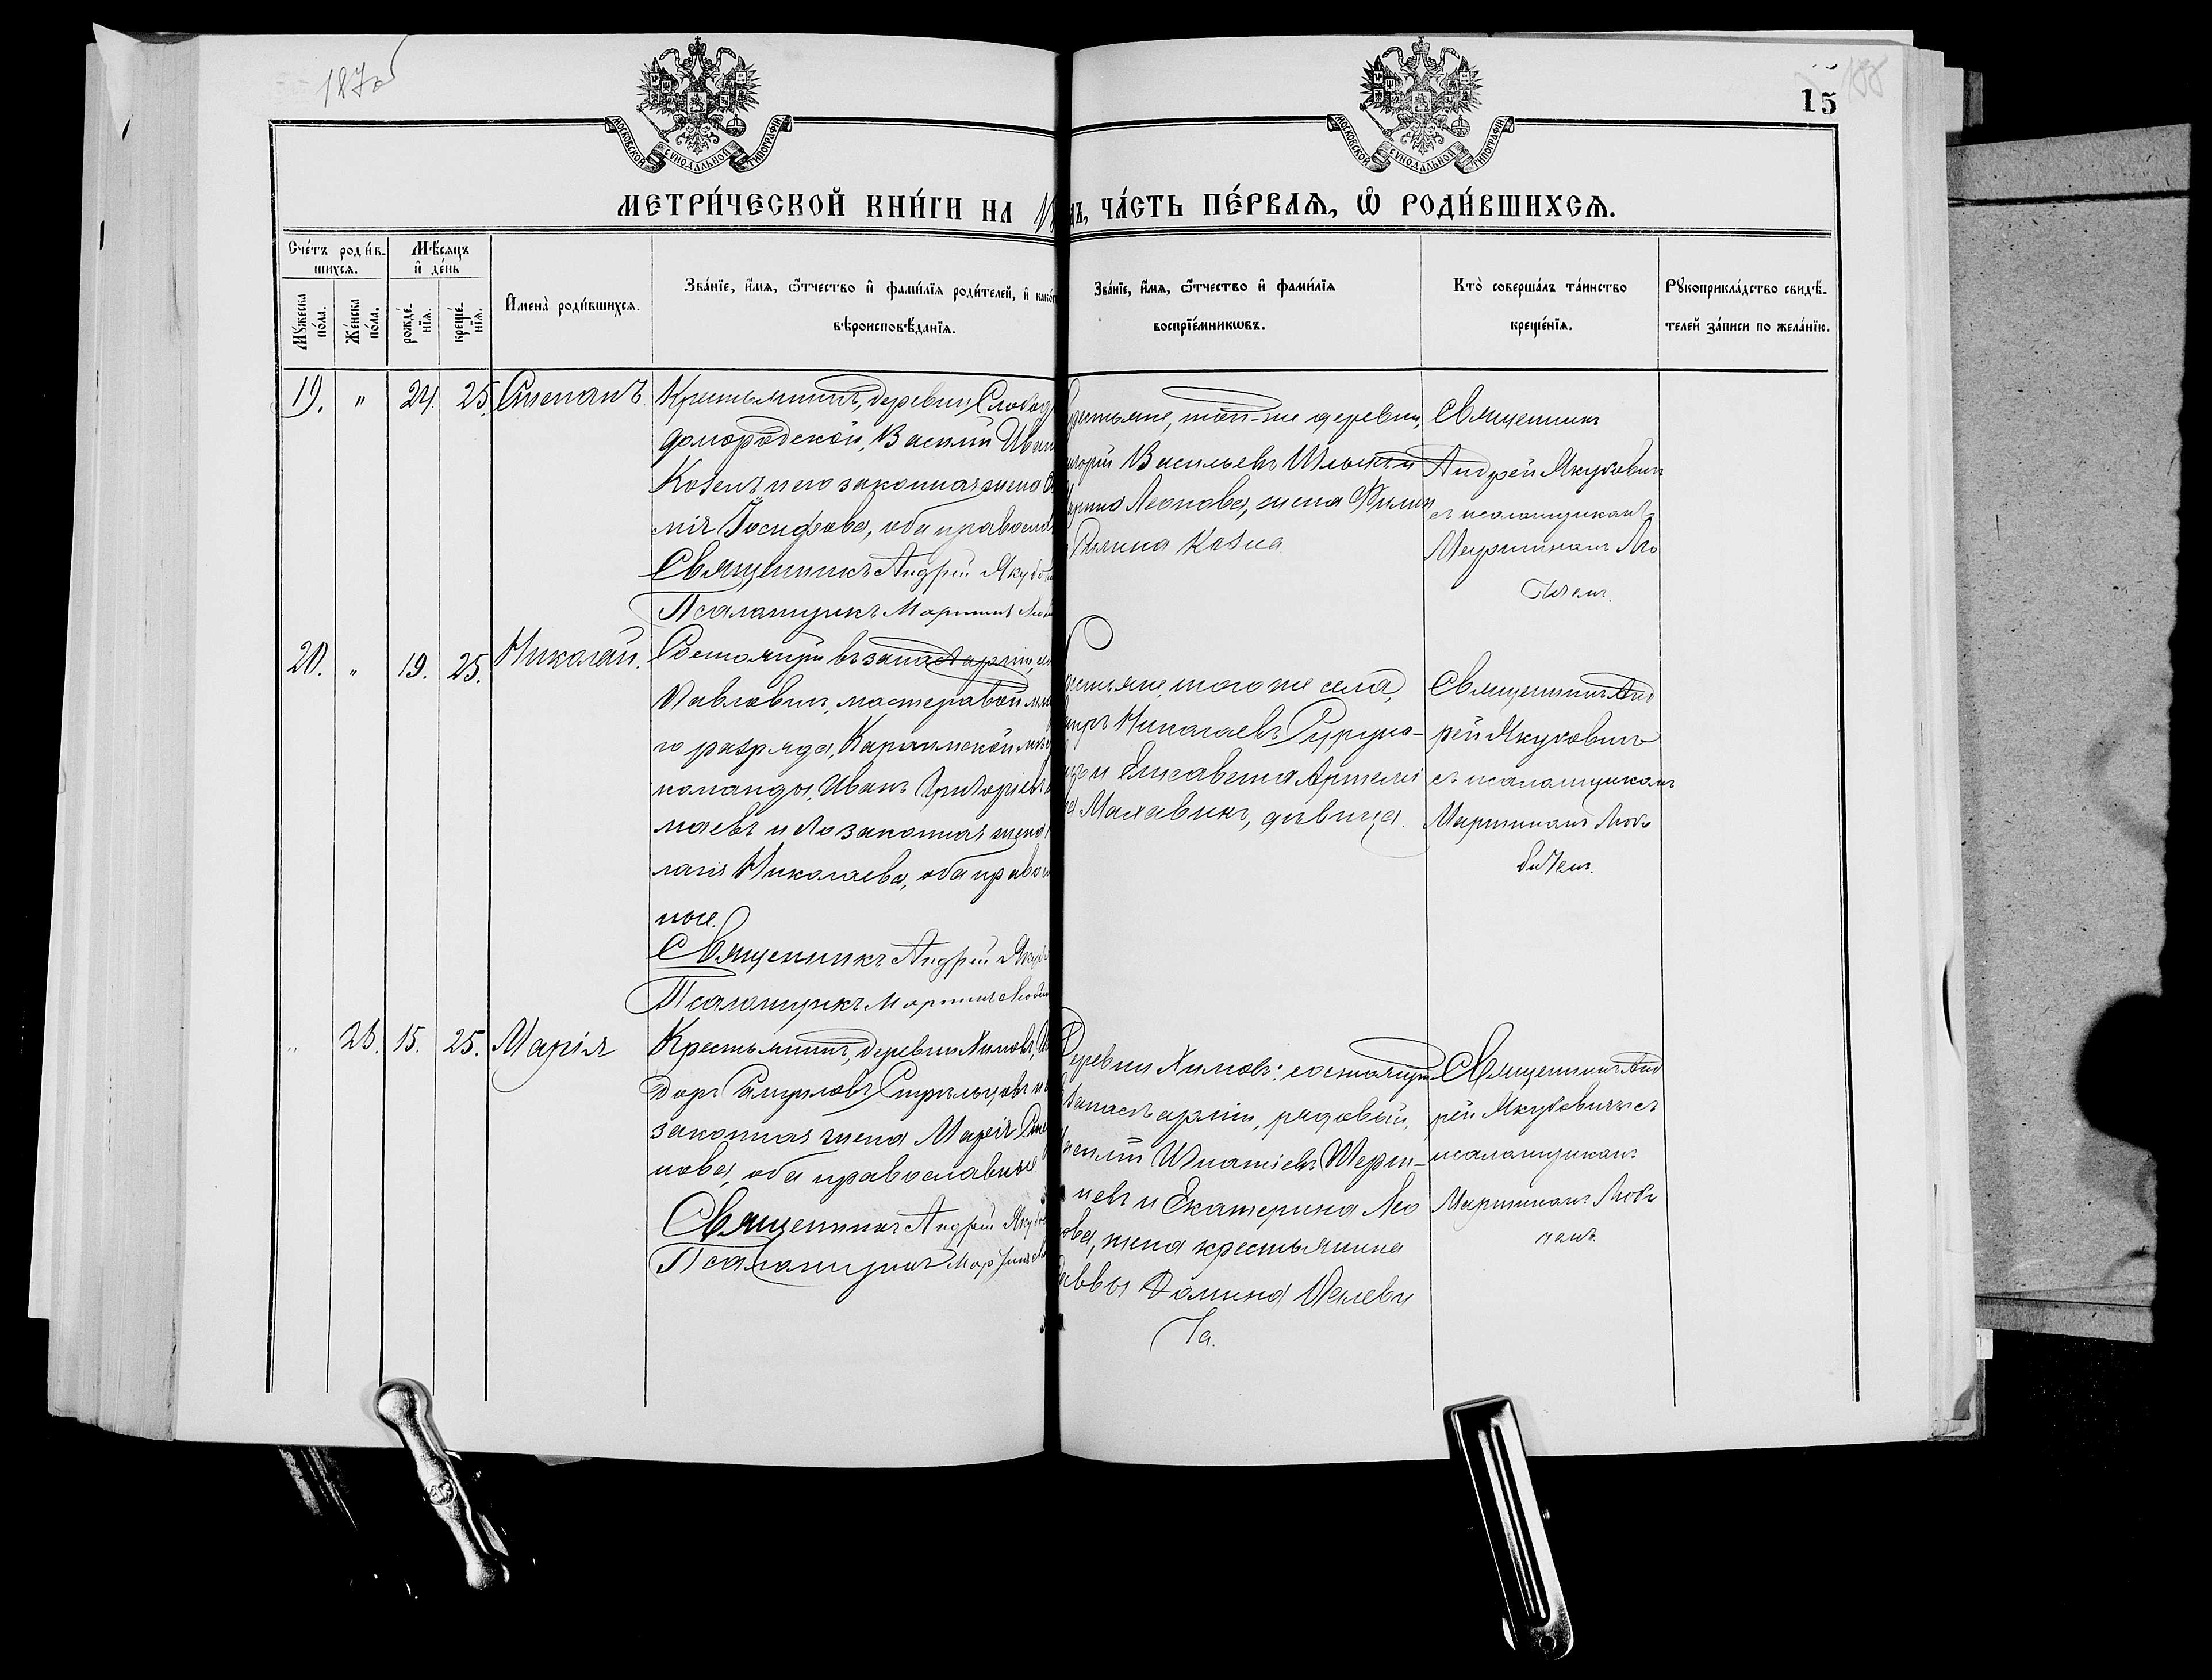 187об
15
188
МОСКОВСКОЙ СУНОДАЛЬНОЙ ТИПОГРАФІИ
МОСКОВСКОЙ СУНОДАЛЬНОЙ ТИПОГРАФІИ
МЕТРИ́ЧЕСКОЙ КНИ́ГИ НА 18
ЧА́СТЬ ПЕ́РВАѦ, Ѽ РОДИ́ВШИХСѦ.
Сче́тъ роди́в-
шихся.
Мѣ́сяцъ
и҆ де́нь
Мꙋ́жеска
по́ла.
Же́нска
по́ла.
рожде́-
нїя.
креще́-
нїя.
И҆мена̀ роди́вшихся.
Зва́нїе, и҆́мя, ѻ҆́тчество и҆ фами́лїя роди́телей, и҆
вѣроисповѣ́данїя.
Зва́нїе, и҆́мя, ѻ҆́тчество и҆ фами́лїя
воспрїе́мникѡвъ.
Кто̀ соверша́лъ та́инство
креще́нїя.
Рꙋкоприкла́дство свидѣ́-
телей за́писи по жела́нїю.
19. " 24. 25. Степанъ.
Крестьянинъ, деревни Слобод
домородской, Василій Иван
Козелъ и его законная жена
мія Іосифова, оба правосла
Священникъ Андрей Якубов
Псаломщикъ Мартинъ Лю
рестьяне, той-же деревни,
игорій Васильевъ и
Леонова, жена Филип
Козла
Священникъ
Андрей Якубовичъ
съ псаломщикомъ
Мартиномъ Лю
20. " 19. 25. Николай.
Состоящій въ запасѣ арміи,
Павловичъ, мастеровой
го разряда,
команды, Иванъ Григорьевъ
маевъ и его законная жена
лагія Николаева, оба правосл
ные.
Священникъ Андрей Якубо
Псаломщикъ Мартинъ Любим
естьяне, того же села,
Николаевъ
и Елисавета Артемі
ва дѣвица.
Священникъ Анд
рей Якубовичъ
съ псаломщикомъ
Мартиномъ Люб
" 28. 15. 25. Марія
Крестьянинъ, деревни Химовъ,
доръ и
законная жена Марія
нова, оба православные
Священникъ Андрей Якубо
Псаломщикъ Мартинъ
Деревни Химовъ: состоящій
запасѣ арміи, рядовой,
асилій Игнатіевъ
невъ и Екатерина Лео
ова, жена крестьянина
аввы Фомина
ча.
Священникъ Анд
рей Якубовичъ съ
псаломщикомъ
Мартиномъ Люб